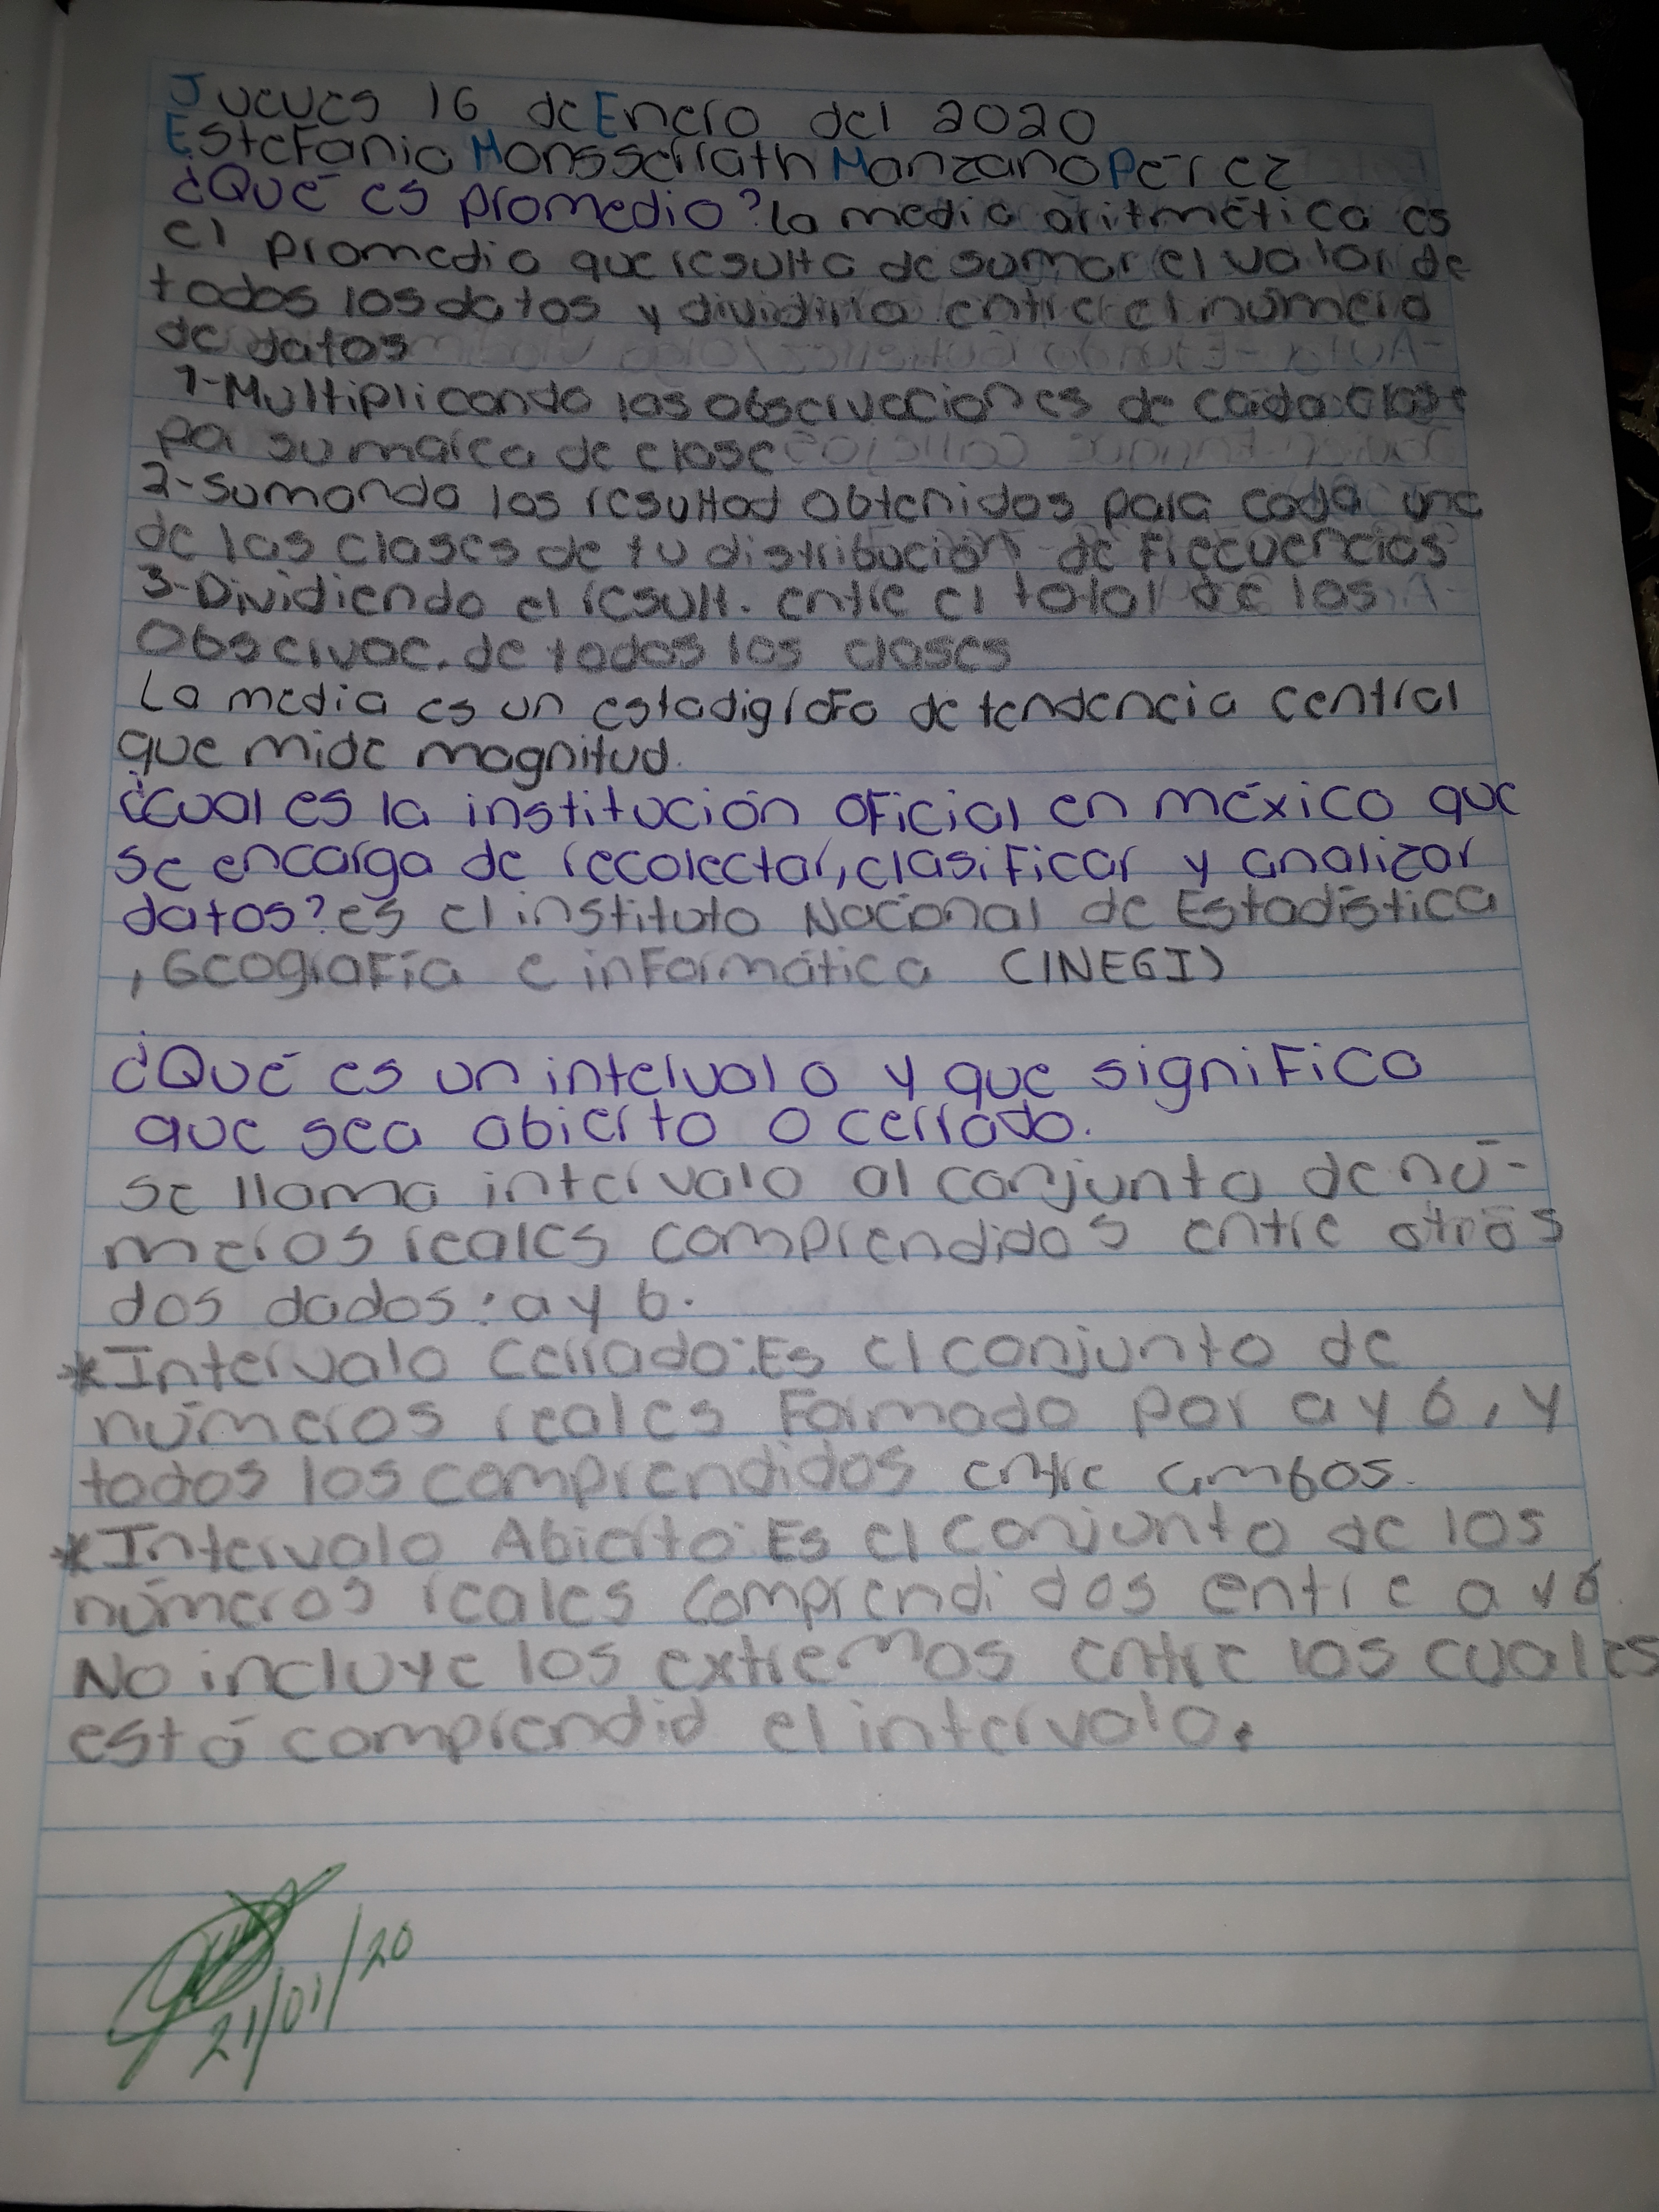 Jueves 16 de Enero del 2020
Estefania Monsserrath Manzano Pérez
¿Qué es promedio? la media aritmética es
el promedio que resulta de sumar el valor de
todos los datos y dividirla entre el número
de datos
1-Multiplicando las observaciones de cada clase
por su marca de clase
2-sumando los resultad obtenidos para cada una
de las clases de tu distribución de Frecuencias
3-Dividiendo el result. entre el total de las
Observac. de todos los clases
La media es un estadigrafo de tendencia central
que mide magnitud.
¿cual es la institución oficial en méxico que
se encarga de recolectar, clasificar y analizar
datos? es el instituto Nacional de Estadística
, Geografía e informática (INEGI)
¿Qué es un intervalo y que significa
que sea abierto o cerrado.
se llama intervalo al conjunto de nú-
meros reales comprendidos entre otros
dos dados: a y b.
*Intervalo cerrado: Es el conjunto de
números reales Formado por a y b, y
todos los comprendidos entre ambos.
*Intervalo Abierto: Es el conjunto de los
números reales comprendidos entre a y b
No incluye los extremos entre los cuales
está comprendid el intervalo.
21/01/20